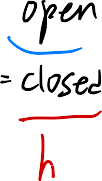 open
= closed
h